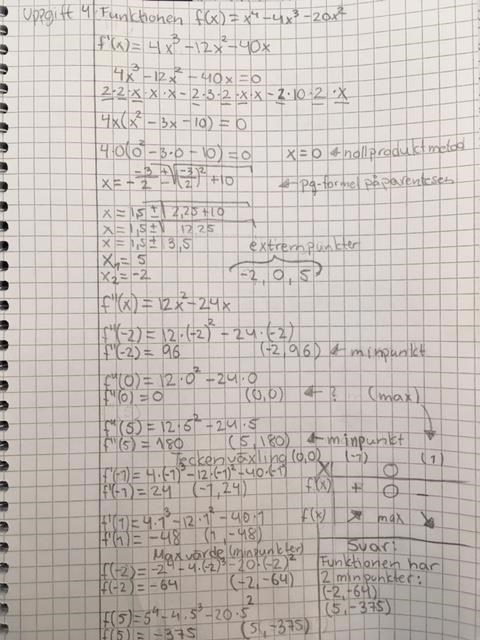 Uppgift 4 Funktionen f(x) = x⁴ - 4x³ - 20x²
f'(x) = 4x³ - 12x² - 40x
4x³ - 12x² - 40x = 0
2·2·x·x·x - 2·3·2·x·x - 2·10·2·x
4x(x² - 3x - 10) = 0
4·0(0² - 3·0 - 10) = 0 x = 0 ← nollproduktmetod
x = - -3/2 ± √((-3/2)² + 10) ← pq-formel på parentesen
x = 1,5 ± √(2,25 + 10)
x = 1,5 ± √12,25
x = 1,5 ± 3,5 extrempunkter
x₁ = 5
x₂ = -2 -2, 0, 5
f''(x) = 12x² - 24x
f''(-2) = 12·(-2)² - 24·(-2)
f''(-2) = 96 (-2, 96) ← minpunkt
f''(0) = 12·0² - 24·0
f''(0) = 0 (0,0) ← ? (max)
f''(5) = 12·5² - 24·5
f''(5) = 180 (5, 180) ← minpunkt
Teckenväxling (0,0) (-1) (1)
f'(-1) = 4·(-1)³ - 12·(-1)² - 40·(-1)
f'(-1) = 24 (-1, 24)
f'(1) = 4·1³ - 12·1² - 40·1
f'(1) = -48 (1, -48)
x 0
f'(x) + 0 -
f(x) ↗ max ↘
Max värde (minpunkter)
f(-2) = -2⁴ - 4·(-2)³ - 20·(-2)²
f(-2) = -64 (-2, -64)
f(5) = 5⁴ - 4·5³ - 20·5²
f(5) = -375 (5, -375)
Svar:
Funktionen har
2 minpunkter:
(-2, -64)
(5, -375)